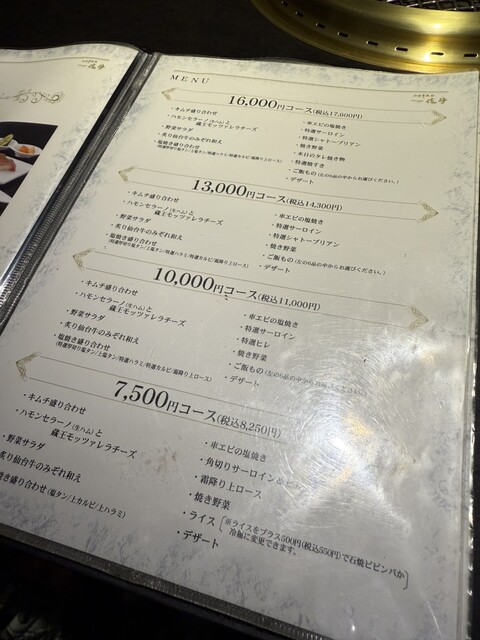 MENU
16,000円コース(税込17,600円)
・キムチ盛り合わせ
・ハモンセラーノ(生ハム)と
蔵王モッツァレラチーズ
・野菜サラダ
・炙り仙台牛のみぞれ和え
・塩焼き盛り合わせ
(特選厚切り塩タン/上塩タン/特選ハラミ/特選カルビ/霜降り上ロース)
・車エビの塩焼き
・特選サーロイン
・特選シャトーブリアン
・焼き野菜
・本日のタレ焼き物
・特選焼すき
・ご飯もの(左の6品の中からお選びください。)
・デザート
13,000円コース(税込14,300円)
・キムチ盛り合わせ
・ハモンセラーノ(生ハム)と
蔵王モッツァレラチーズ
・野菜サラダ
・炙り仙台牛のみぞれ和え
・塩焼き盛り合わせ
(特選厚切り塩タン/上塩タン/特選ハラミ/特選カルビ/霜降り上ロース)
・車エビの塩焼き
・特選サーロイン
・特選シャトーブリアン
・焼き野菜
・ご飯もの(左の6品の中からお選びください。)
・デザート
10,000円コース(税込11,000円)
・キムチ盛り合わせ
・ハモンセラーノ(生ハム)と
蔵王モッツァレラチーズ
・野菜サラダ
・炙り仙台牛のみぞれ和え
・塩焼き盛り合わせ
(特選厚切り塩タン/上塩タン/特選ハラミ/特選カルビ/霜降り上ロース)
・車エビの塩焼き
・特選サーロイン
・特選ヒレ
・焼き野菜
・ご飯もの(左の6品の中からお選びください。)
・デザート
7,500円コース(税込8,250円)
・キムチ盛り合わせ
・ハモンセラーノ(生ハム)と
蔵王モッツァレラチーズ
・野菜サラダ
炙り仙台牛のみぞれ和え
焼き盛り合わせ(塩タン/上カルビ/上ハラミ)
・車エビの塩焼き
・角切りサーロイン
・霜降り上ロース
・焼き野菜
・ライス ※ライスをプラス500円(税込550円)で石焼ビビンバか
冷麺に変更できます。
・デザート